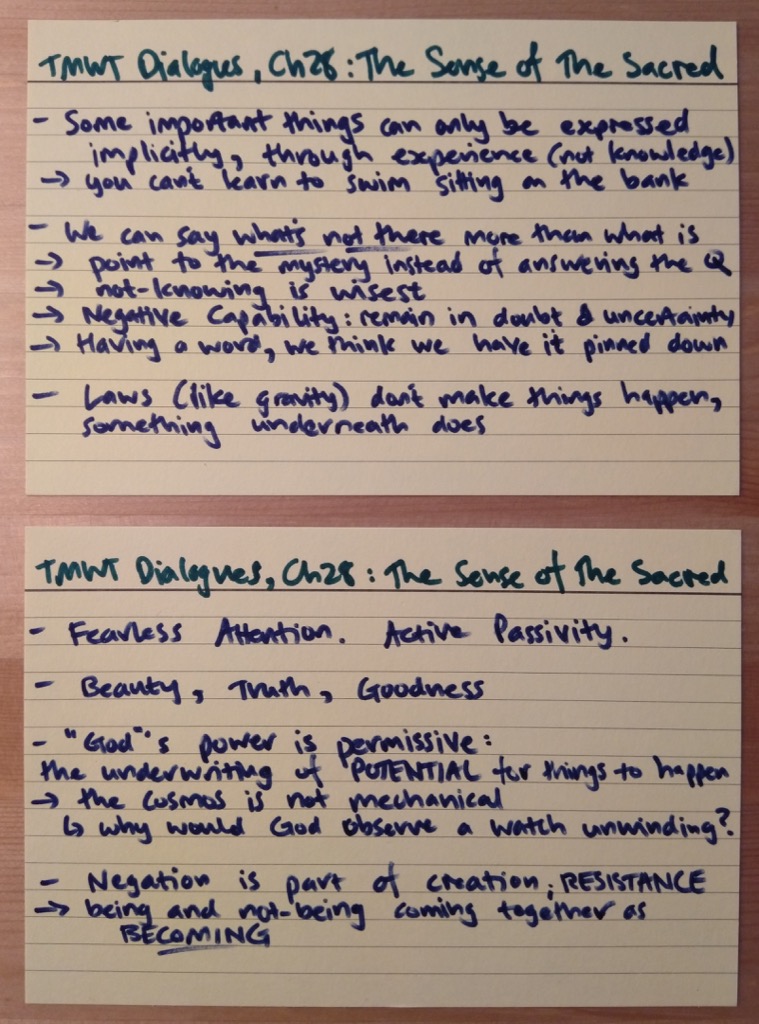 TMWT Dialogues, Ch28: The Sense of The Sacred
- Some important things can only be expressed
implicitly, through experience (not knowledge)
→ you can't learn to swim sitting on the bank
- We can say what's not there more than what is
→ point to the mystery instead of answering the Q
→ not-knowing is wisest
→ Negative Capability: remain in doubt & uncertainty
→ Having a word, we think we have it pinned down
- Laws (like gravity) don't make things happen,
something underneath does
TMWT Dialogues, Ch28: The Sense of The Sacred
- Fearless Attention. Active Passivity.
- Beauty, Truth, Goodness
- "God"'s power is permissive:
the underwriting of POTENTIAL for things to happen
→ the cosmos is not mechanical
↳ why would God observe a watch unwinding?
- Negation is part of creation; RESISTANCE
→ being and not-being coming together as
BECOMING